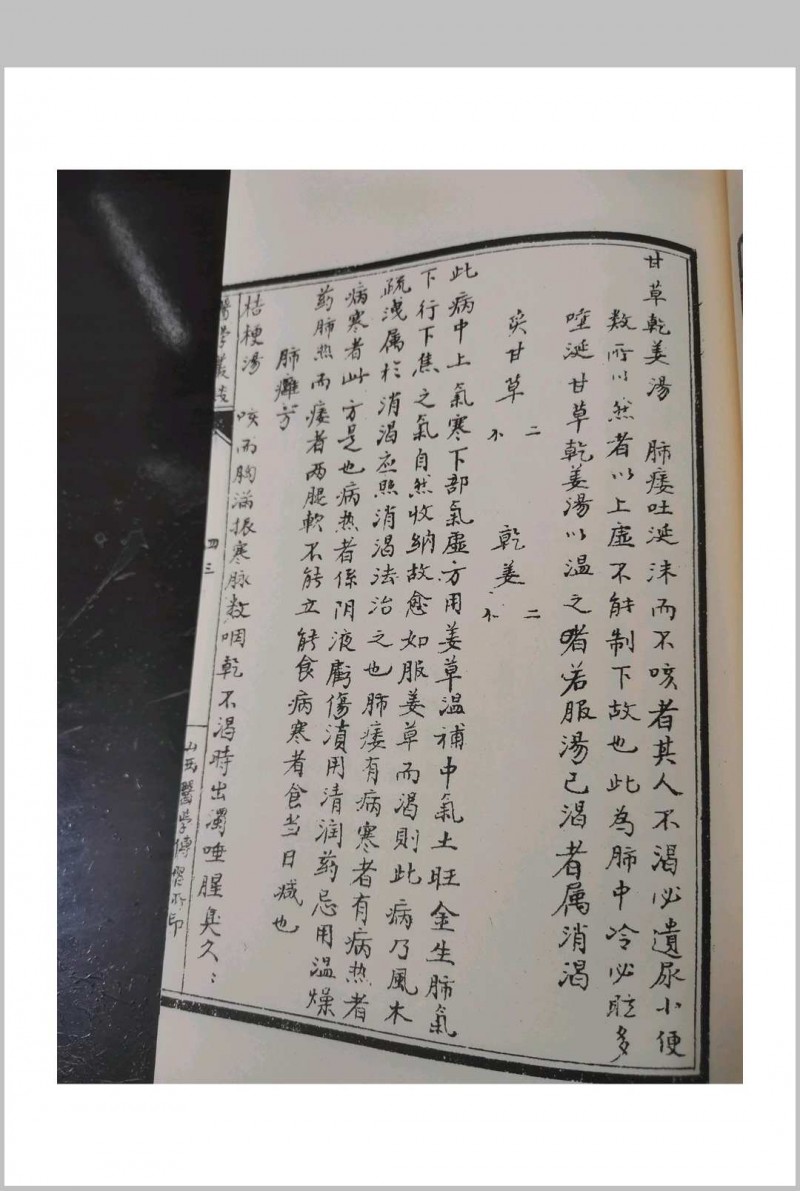 甘草乾姜湯 肺痿吐涎沫而不咳者其人不渴必遺尿小便
数所以然者以上虚不能制下故也此為肺中冷必眩多
唾涎甘草乾姜湯以温之者若服湯已渴者属消渴
炙甘草 二 乾姜 二
此病中上氣寒下部氣虚方用姜草温補中氣土旺金生肺氣
下行下焦之氣自然收納故愈如服姜草而渴則此病乃風木
疏洩属於消渴应照消渴法治之也肺痿有病寒者有病热者
病寒者此方是也病热者係阴液虧傷須用清润药忌用温燥
药肺热而痿者两腿軟不能立能食病寒者食当日减也
肺癰方
桔梗湯 咳而胸滿振寒脉数咽乾不渴時出濁唾腥臭久〻
醫学叢書
四三
山西醫學傳習所印